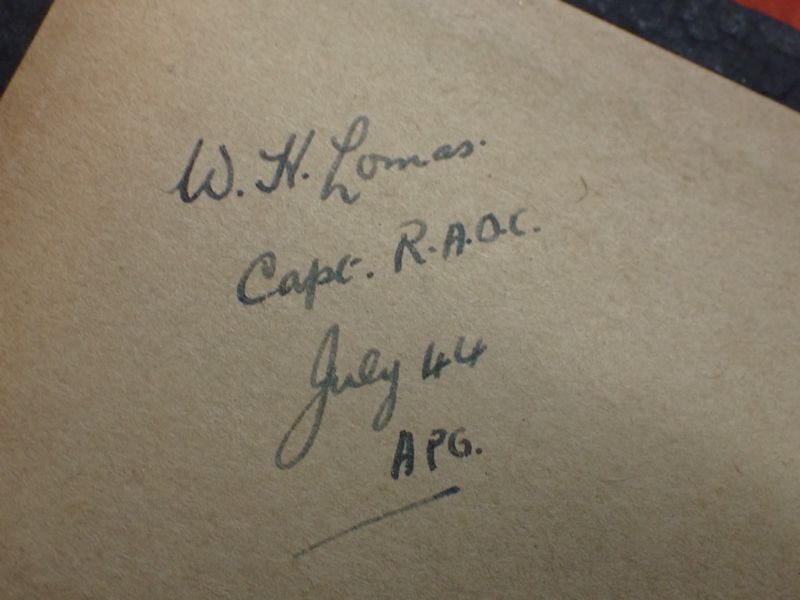 W. H. Lomas.
Capt. R.A.O.C.
July 44
APG.